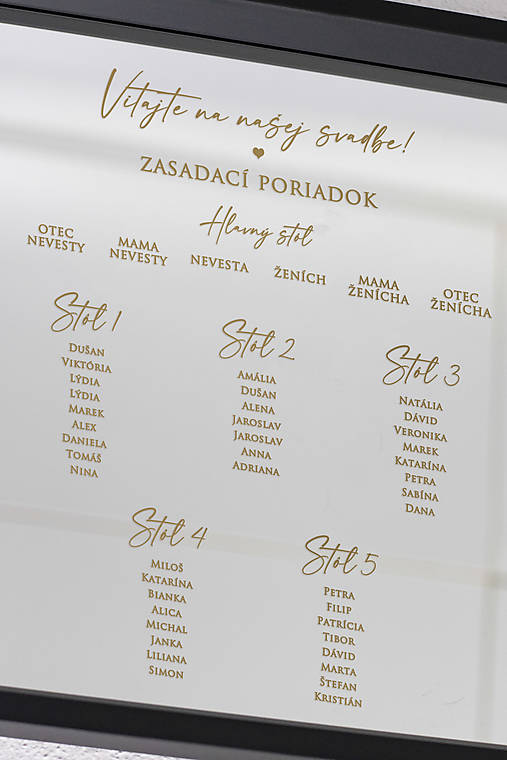 Vitajte na našej svadbe!
ZASADACÍ PORIADOK
Hlavný stôl
OTEC NEVESTY
MAMA NEVESTY
NEVESTA
ŽENÍCH
MAMA ŽENÍCHA
OTEC ŽENÍCHA
Stôl 1
DUŠAN
VIKTÓRIA
LÝDIA
LÝDIA
MAREK
ALEX
DANIELA
TOMÁŠ
NINA
Stôl 2
AMÁLIA
DUŠAN
ALENA
JAROSLAV
JAROSLAV
ANNA
ADRIANA
Stôl 3
NATÁLIA
DÁVID
VERONIKA
MAREK
KATARÍNA
PETRA
SABÍNA
DANA
Stôl 4
MILOŠ
KATARÍNA
BIANKA
ALICA
MICHAL
JANKA
LILIANA
SIMON
Stôl 5
PETRA
FILIP
PATRÍCIA
TIBOR
DÁVID
MARTA
ŠTEFAN
KRISTIÁN